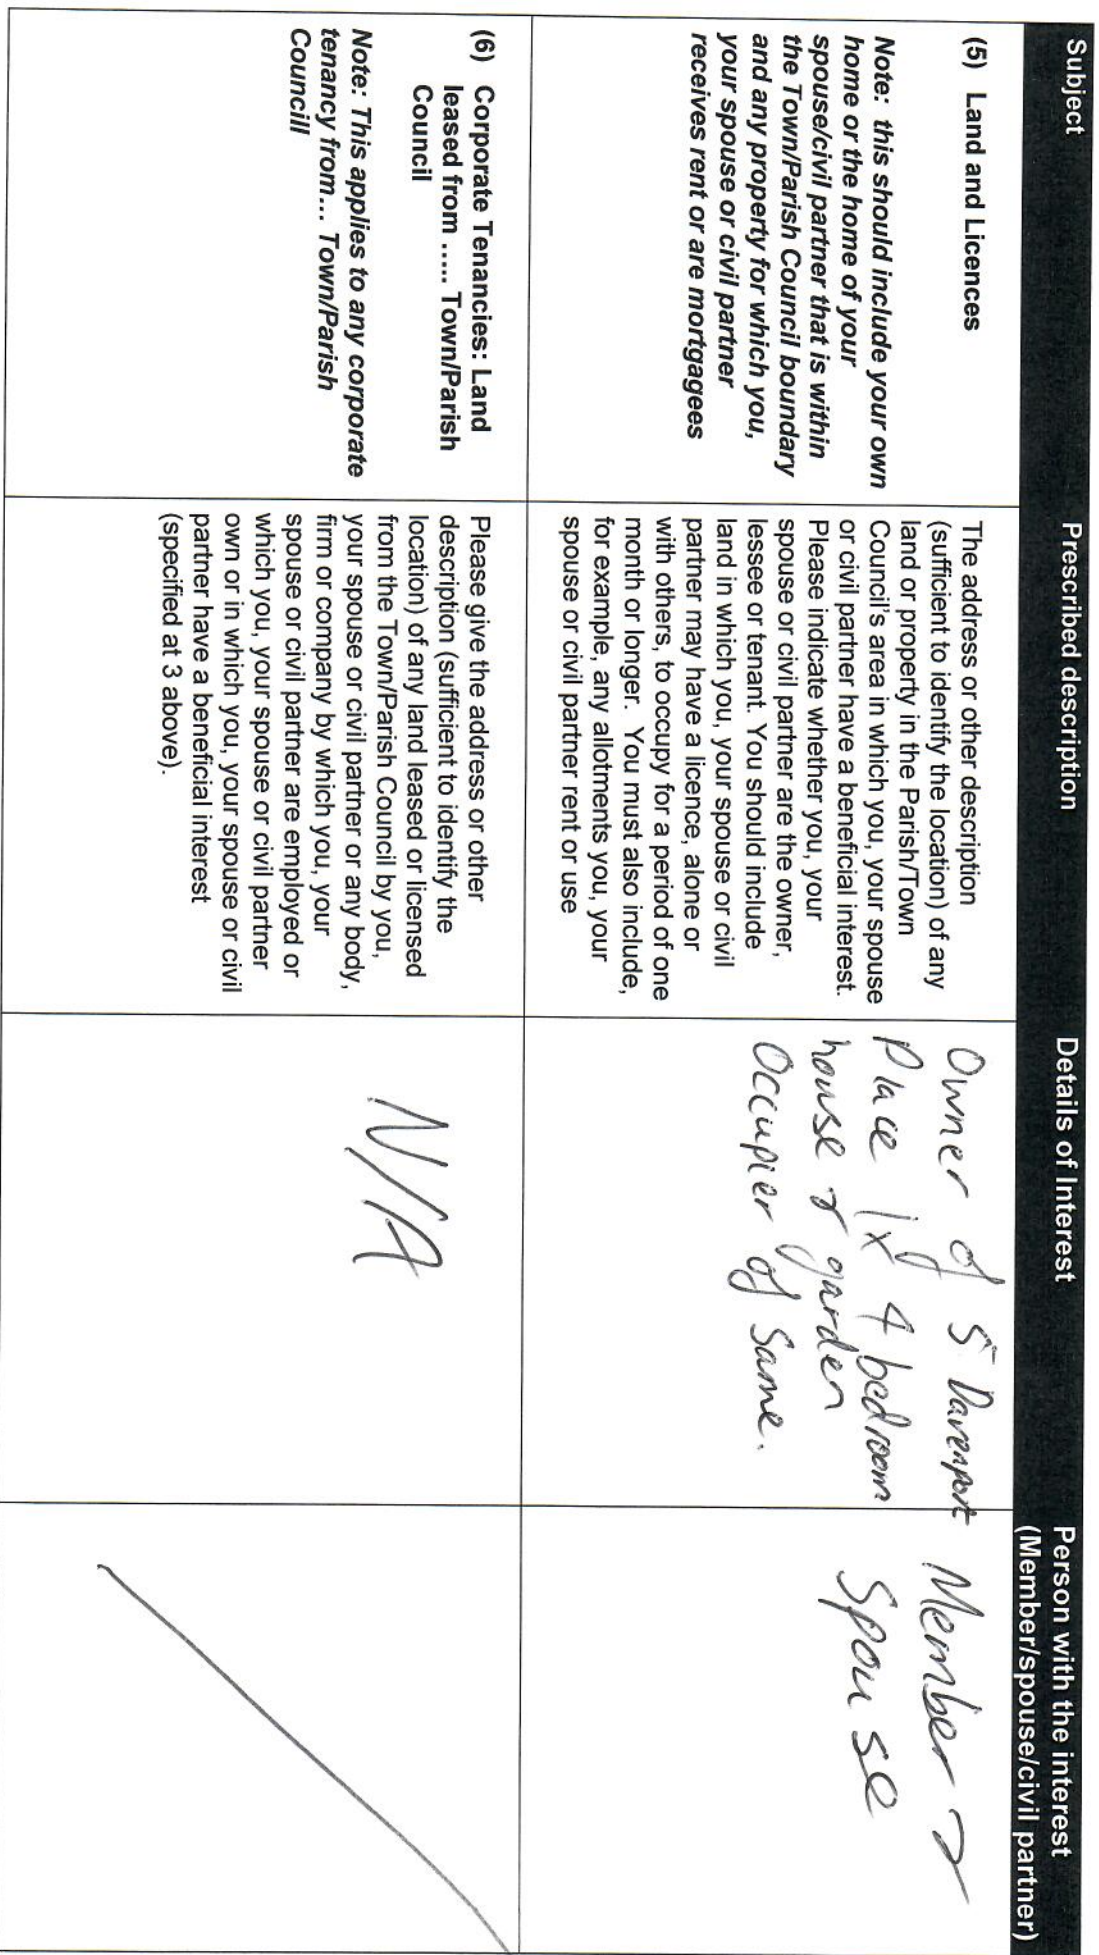 Subject
Prescribed description
Details of Interest
Person with the interest
(Member/spouse/civil partner)
(5) Land and Licences
Note: this should include your own
home or the home of your
spouse/civil partner that is within
the Town/Parish Council boundary
and any property for which you,
your spouse or civil partner
receives rent or are mortgagees
The address or other description
(sufficient to identify the location) of any
land or property in the Parish/Town
Council's area in which you, your spouse
or civil partner have a beneficial interest.
Please indicate whether you, your
spouse or civil partner are the owner,
lessee or tenant. You should include
land in which you, your spouse or civil
partner may have a licence, alone or
with others, to occupy for a period of one
month or longer. You must also include,
for example, any allotments you, your
spouse or civil partner rent or use
Owner of 5 Davenport
Place 1x 4 bedroom
house & garden
Occupier of Same.
Member &
Spouse
(6) Corporate Tenancies: Land
leased from ..... Town/Parish
Council
Note: This applies to any corporate
tenancy from... Town/Parish
Councill
Please give the address or other
description (sufficient to identify the
location) of any land leased or licensed
from the Town/Parish Council by you,
your spouse or civil partner or any body,
firm or company by which you, your
spouse or civil partner are employed or
which you, your spouse or civil partner
own or in which you, your spouse or civil
partner have a beneficial interest
(specified at 3 above).
N/A